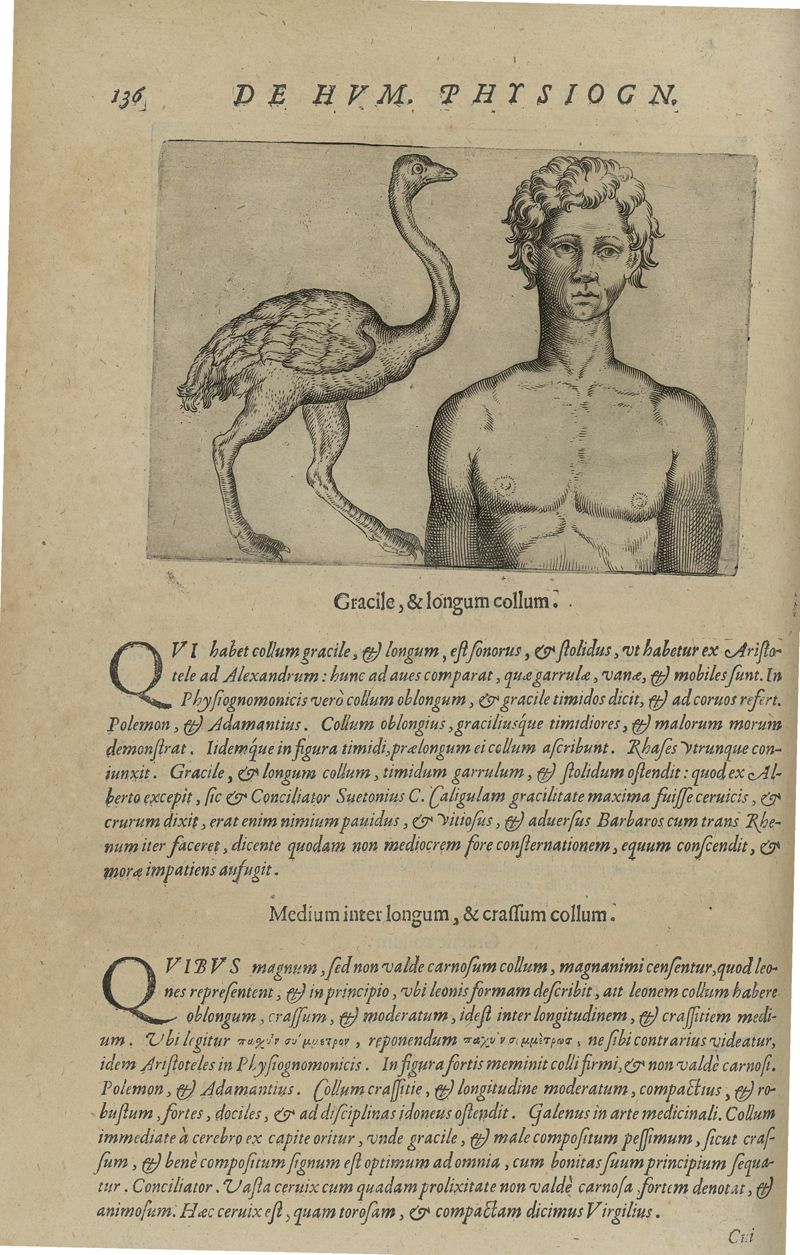 136 DE HVM. PHYSIOGN.
Gracile, & longum collum.
QVI habet collum gracile, & longum, est sonorus, & stolidus, vt habetur ex Aristo-
tele ad Alexandrum: hunc ad aues comparat, quæ garrulæ, vanæ, & mobiles sunt. In
Physiognomonicis verò collum oblongum, & gracile timidos dicit, & ad coruos refert.
Polemon, & Adamantius. Collum oblongius, graciliusque timidiores, & malorum morum
demonstrat. Iidemque in figura timidi, prælongum ei collum ascribunt. Rhases vtrunque con-
iunxit. Gracile, & longum collum, timidum garrulum, & stolidum ostendit: quod ex Al-
berto excepit, sic & Conciliator Suetonius C. Caligulam gracilitate maxima fuisse ceruicis, &
crurum dixit, erat enim nimium pauidus, & vitiosus, & aduersus Barbaros cum trans Rhe-
num iter faceret, dicente quodam non mediocrem fore consternationem, equum conscendit, &
moræ impatiens aufugit.
Medium inter longum, & crassum collum.
QVIBVS magnum, sed non valde carnosum collum, magnanimi censentur, quod leo-
nes repræsentent, & in principio, vbi leonis formam describit, ait leonem collum habere
oblongum, crassum, & moderatum, idest inter longitudinem, & crassitiem medi-
um. Vbi legitur παχὺν σύμμετρον, reponendum παχὺν συμμέτρως, ne sibi contrarius videatur,
idem Aristoteles in Physiognomonicis. In figura fortis meminit colli firmi, & non valdè carnosi.
Polemon, & Adamantius. Collum crassitie, & longitudine moderatum, compactius, & ro-
bustum, fortes, dociles, & ad disciplinas idoneus ostendit. Galenus in arte medicinali. Collum
immediate à cerebro ex capite oritur, vnde gracile, & male compositum pessimum, sicut cras-
sum, & benè compositum signum est optimum ad omnia, cum bonitas suum principium sequa-
tur. Conciliator. Vasta ceruix cum quadam prolixitate non valdè carnosa fortem denotat, &
animosum. Hæc ceruix est, quam torosam, & compactam dicimus Virgilius.
Cui